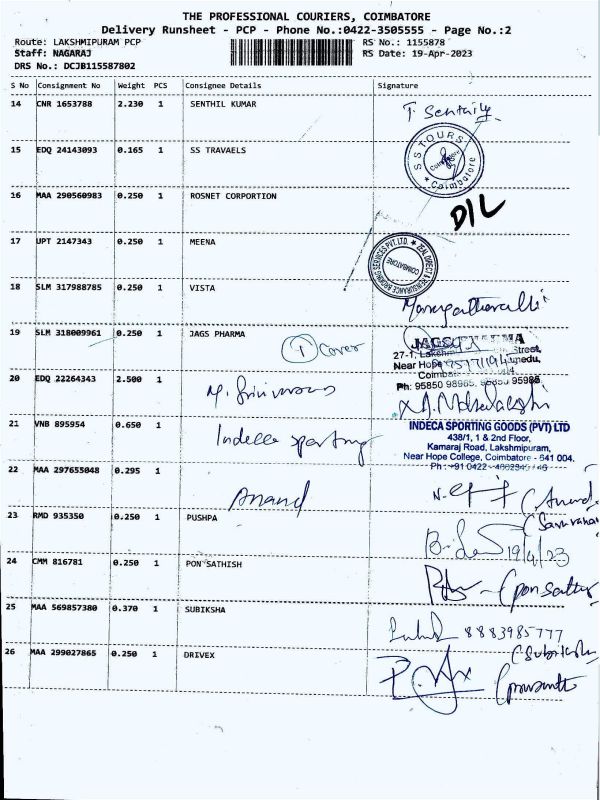 THE PROFESSIONAL COURIERS, COIMBATORE
Delivery Runsheet - PCP - Phone No.:0422-3505555 - Page No.:2
Route: LAKSHMIPURAM PCP RS No.: 1155878
Staff: NAGARAJ RS Date: 19-Apr-2023
DRS No.: DCJB115587802
S No Consignment No Weight PCS Consignee Details Signature
14 CNR 1653788 2.230 1 SENTHIL KUMAR
15 EDQ 24143093 0.165 1 SS TRAVAELS
S S TOURS
Coimbatore
16 MAA 290560983 0.250 1 ROSNET CORPORTION
D/L
17 UPT 2147343 0.250 1 MEENA
COIMBATORE
18 SLM 317988785 0.250 1 VISTA
19 SLM 318009961 0.250 1 JAGS PHARMA
1 Cover
27-1, Street,
Near Hope
Ph: 95850 98965,
20 EDQ 22264343 2.500 1
21 VNB 895954 0.650 1
INDECA SPORTING GOODS (PVT) LTD
438/1, 1 & 2nd Floor,
Kamaraj Road, Lakshmipuram,
Near Hope College, Coimbatore - 641 004.
22 MAA 297655048 0.295 1 Anand
(Anand
23 RMD 935350 0.250 1 PUSHPA
19/4/23
24 CMM 816781 0.250 1 PON SATHISH
25 MAA 569857380 0.370 1 SUBIKSHA
8883985777
26 MAA 299027865 0.250 1 DRIVEX